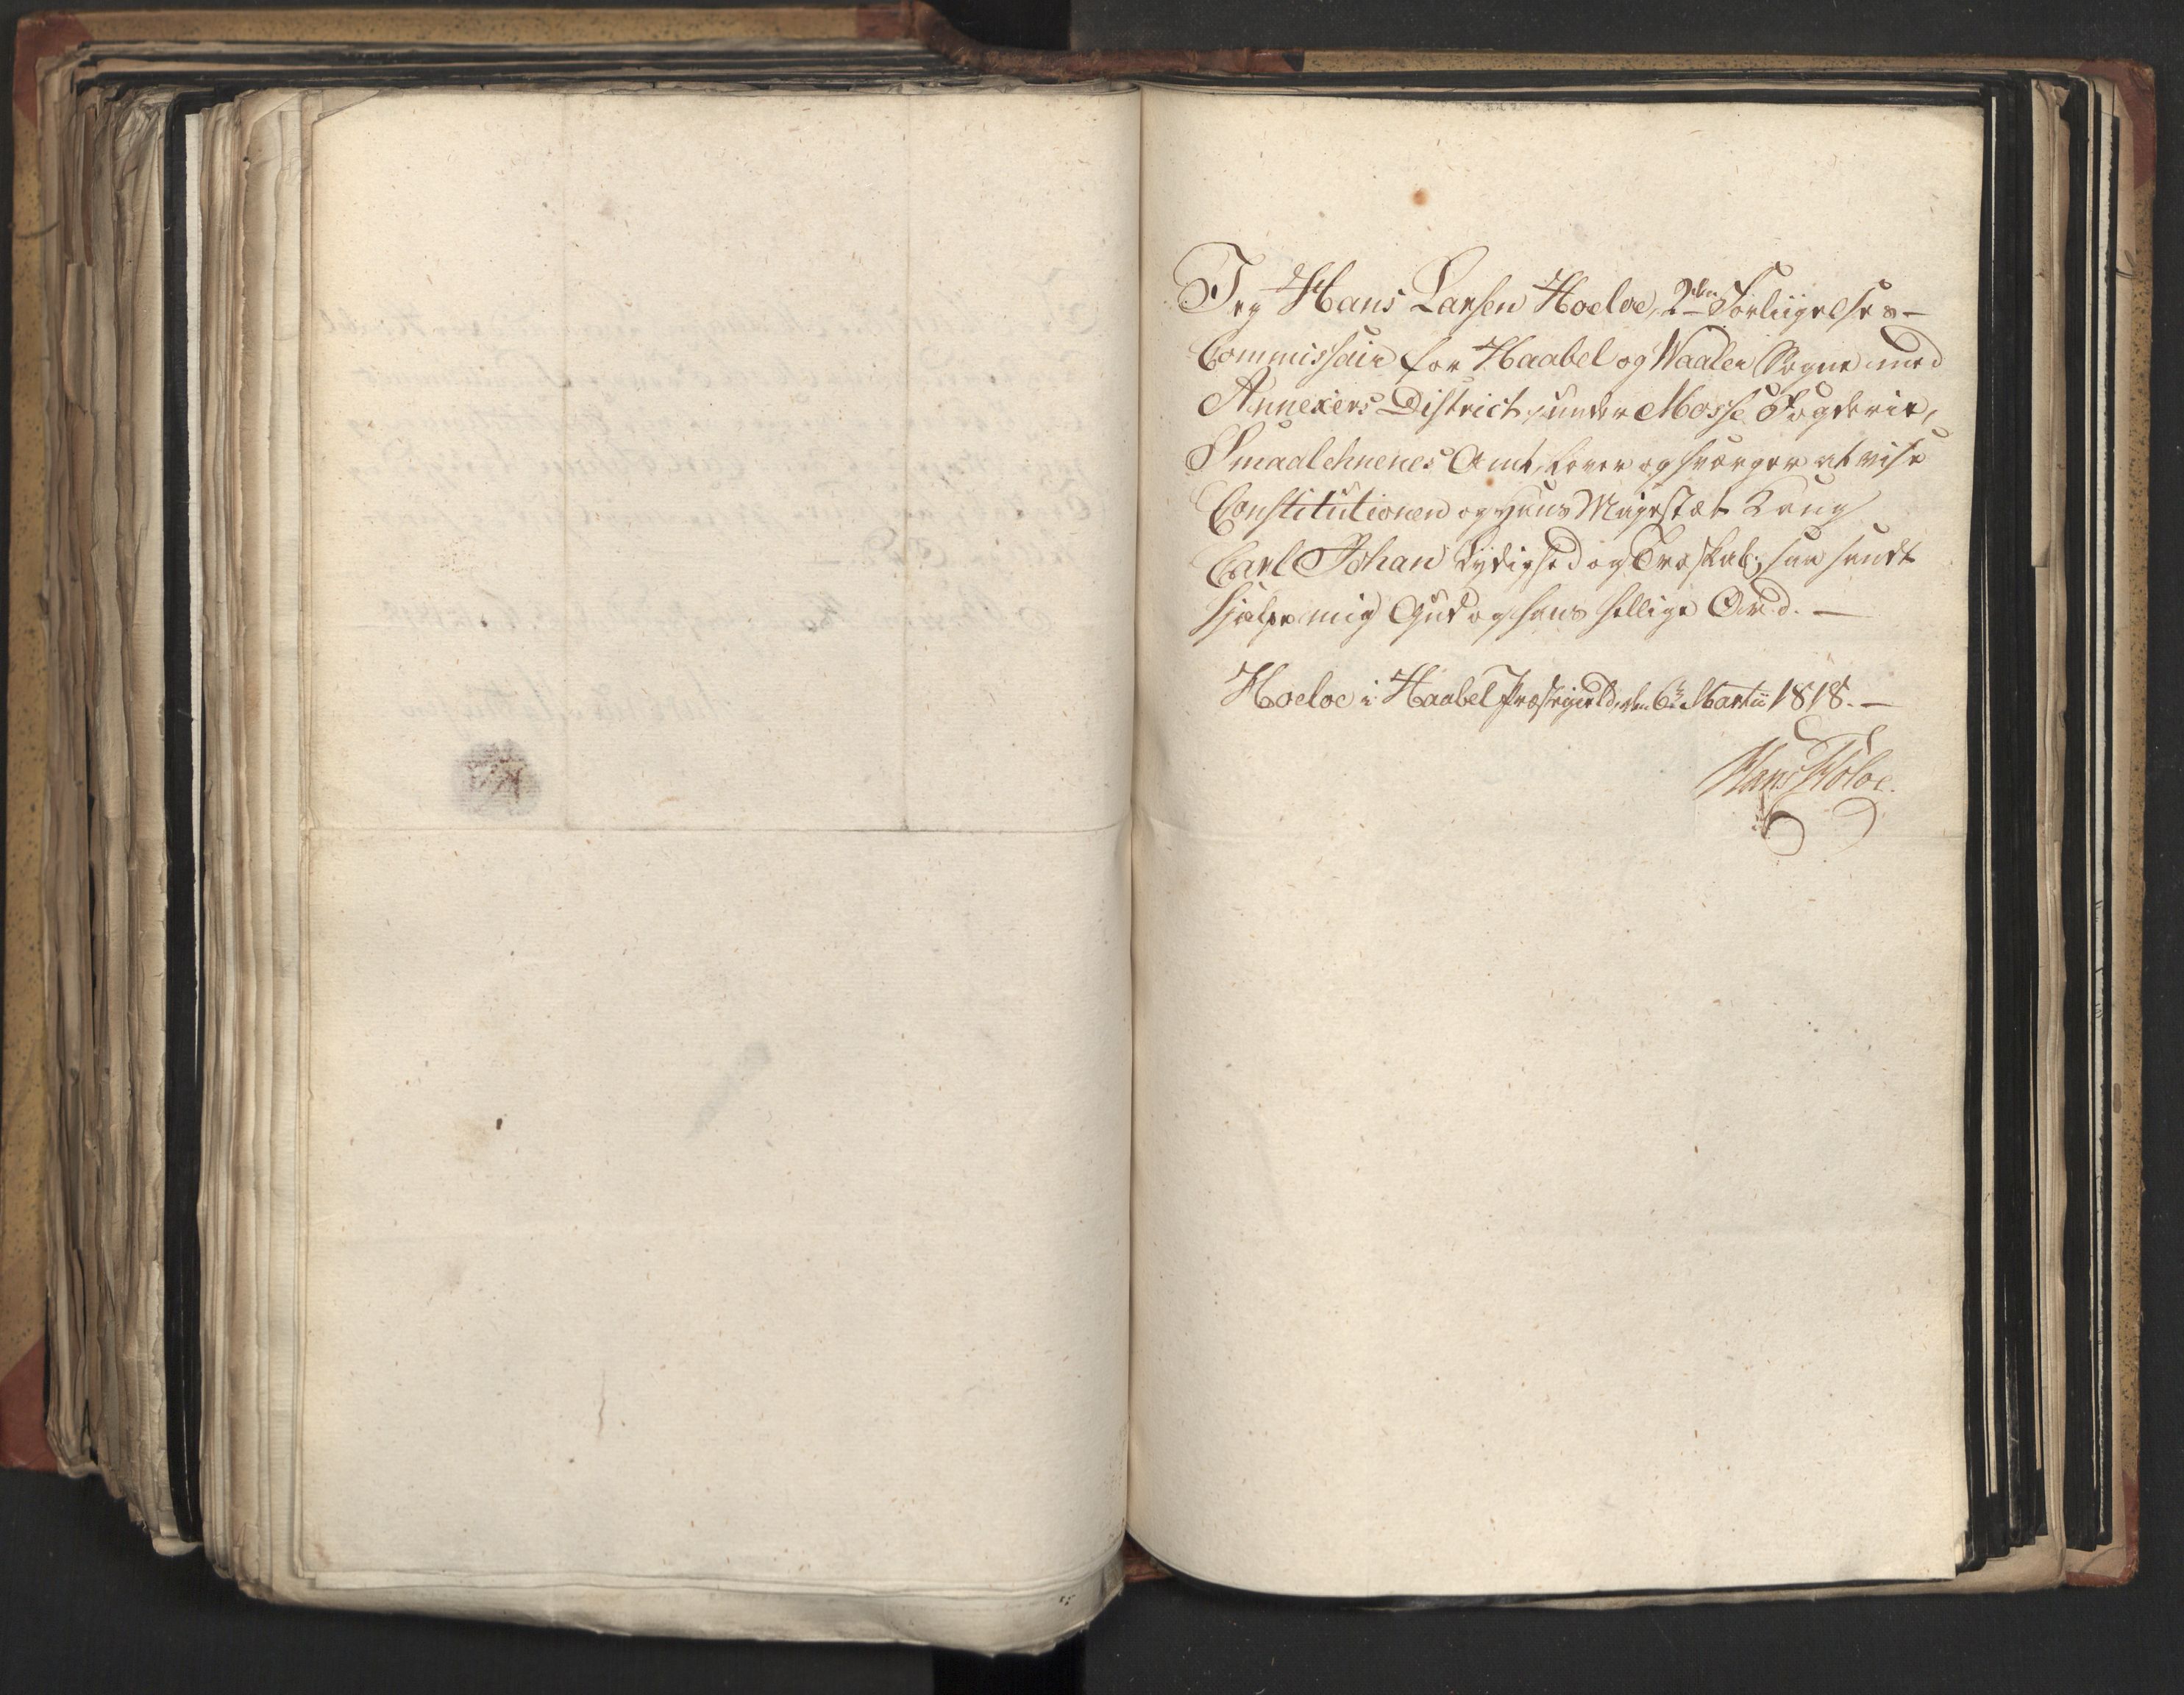 Jeg Hans Larsen Hoeloe, 2den Forliigelses-
Commissair for Haabel og Waaler Sogne med
Annexers District, under Mosse Fogderie,
Smaalehnenes Amt, lover og sværger at vise
Constitutionen og Hans Majestæt Kong
Carl Johan Lydighed og Troskab; saa sandt
hjælpe mig Gud og hans hellige Ord. —
Hoeloe i Haabel Præstegield, den 6te Martii 1818. —
Hans Holoe.